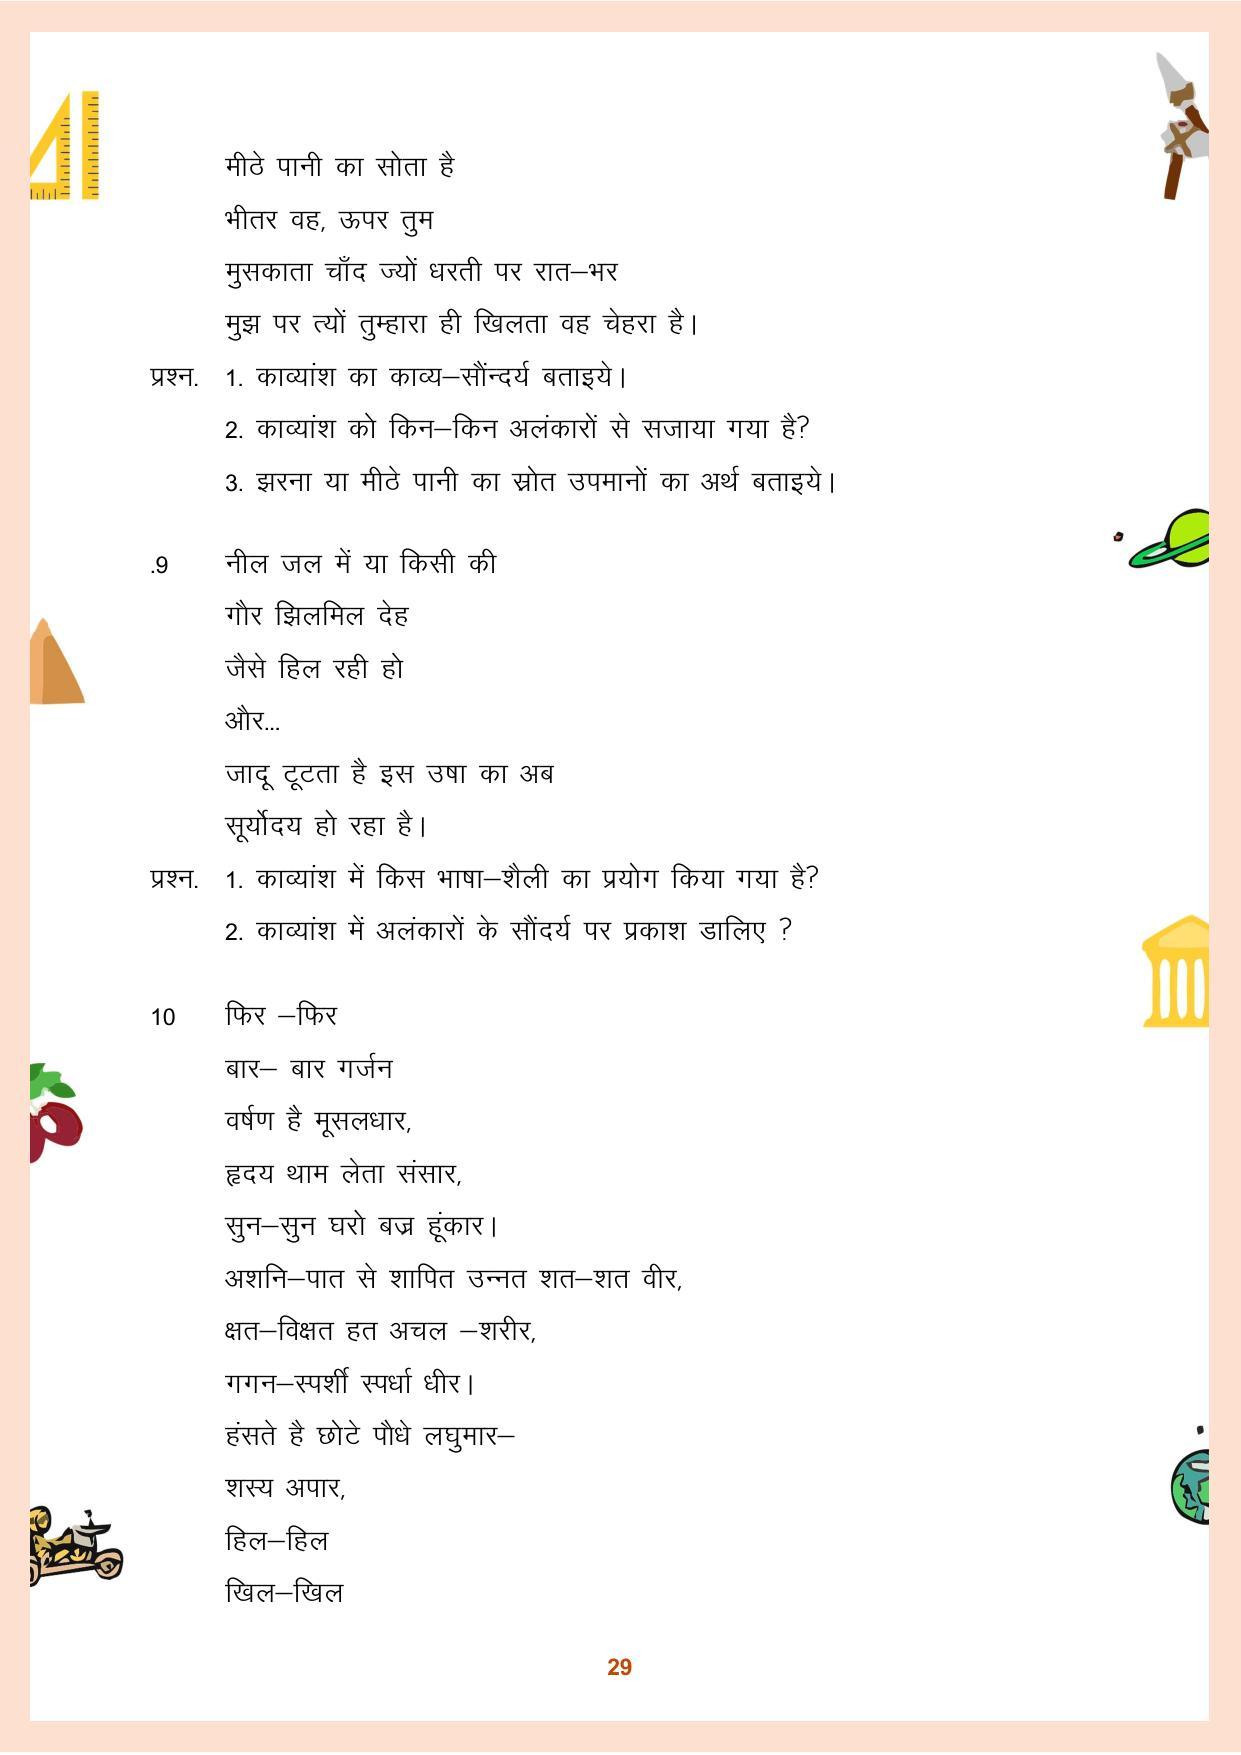 मीठे पानी का सोता है
भीतर वह, ऊपर तुम
मुसकाता चाँद ज्यों धरती पर रात–भर
मुझ पर त्यों तुम्हारा ही खिलता वह चेहरा है।
प्रश्न. 1. काव्यांश का काव्य–सौंन्दर्य बताइये।
2. काव्यांश को किन–किन अलंकारों से सजाया गया है?
3. झरना या मीठे पानी का स्रोत उपमानों का अर्थ बताइये।
.9 नील जल में या किसी की
गौर झिलमिल देह
जैसे हिल रही हो
और...
जादू टूटता है इस उषा का अब
सूर्योदय हो रहा है।
प्रश्न. 1. काव्यांश में किस भाषा–शैली का प्रयोग किया गया है?
2. काव्यांश में अलंकारों के सौंदर्य पर प्रकाश डालिए ?
10 फिर –फिर
बार– बार गर्जन
वर्षण है मूसलधार,
हृदय थाम लेता संसार,
सुन–सुन घरो बज्र हूंकार।
अशनि–पात से शापित उन्नत शत–शत वीर,
क्षत–विक्षत हत अचल –शरीर,
गगन–स्पर्शी स्पर्धा धीर।
हंसते है छोटे पौधे लघुमार–
शस्य अपार,
हिल–हिल
खिल–खिल
29